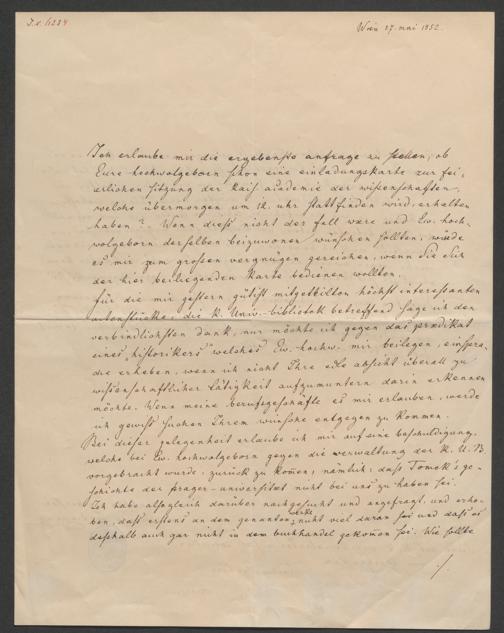 J.N. 11284
Wien 27. mai 1852.
Ich erlaube mir die ergebenste anfrage zu stellen, ob
Eure hochwolgeborn schon eine einladungskarte zur fei-
erlichen sitzung der kais. academie der wissenschaften,
welche übermorgen um 12 uhr stattfinden wird, erhalten
haben? Wenn diess nicht der fall wäre und Ew. hoch-
wolgeborn derselben beizuwonen wünschen sollten, würde
es mir zum grossen vergnügen gereichen, wenn Sie Sich
der hier beiliegenden karte bedienen wollten.
Für die mir gestern gütigst mitgetheilten höchst interessanten
actenstücke, die k. Univ.-bibliothek betreffend sage ich den
verbindlichsten dank, nur möchte ich gegen das prædikat
eines „historikers" welches Ew. hochw. mir beilegen, einspra-
che erheben, wenn ich nicht Ihre edle absicht überall zu
wissenschaftlicher tätigkeit aufzumuntern darin erkennen
möchte. Wenn meine berufsgeschäfte es mir erlauben, werde
ich gewiss suchen Ihrem wunsche entgegen zu kommen.
Bei dieser gelegenheit erlaube ich mir auf eine beschuldigung,
welche bei Ew. hochwolgeborn gegen die verwaltung der K. U. B.
vorgebracht wurde, zurück zu komen, nämlich, dass Tomek's ge-
schichte der prager-universitæt nicht bei uns zu haben sei.
Ich habe alsogleich darüber nachgesucht und angefragt, und erho-
ben, dass erstens an dem genanten werke nicht viel daran sei und dass es
desshalb auch gar nicht in dem buchhandel gekomen sei. Wie sollte
./.